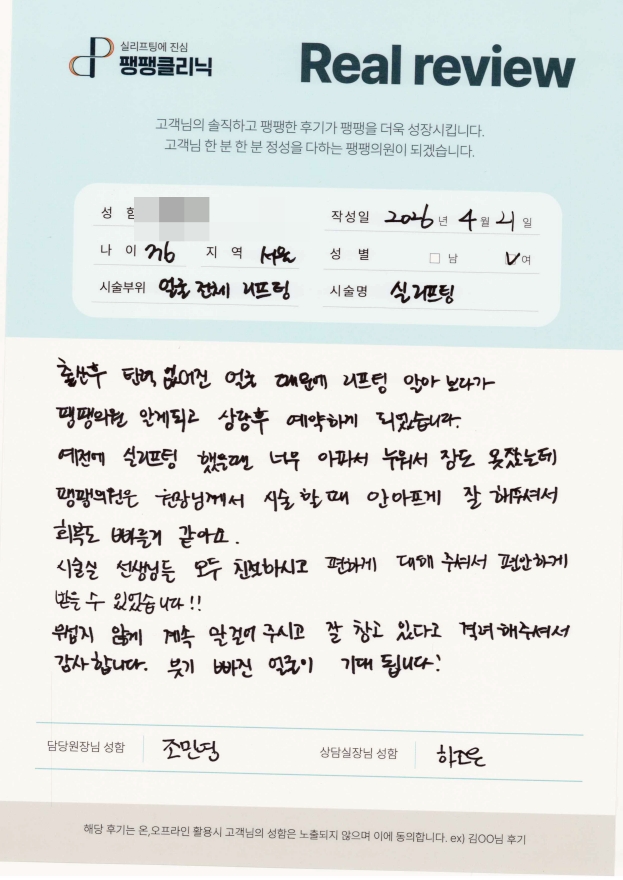 실리프팅에 진심
팽팽클리닉
Real review
고객님의 솔직하고 팽팽한 후기가 팽팽을 더욱 성장시킵니다.
고객님 한 분 한 분 정성을 다하는 팽팽의원이 되겠습니다.
성 함
작성일 2026 년 4 월 21 일
나 이 36 지 역 서울
성 별 □ 남 V 여
시술부위 얼굴 전체 리프팅
시술명 실리프팅
출산후 탄력 없어진 얼굴 때문에 리프팅 알아 보다가
팽팽의원 알게되고 상담후 예약하게 되었습니다.
예전에 실리프팅 했을때 너무 아파서 누워서 잠도 못잤는데
팽팽의원은 원장님께서 시술 할때 안아프게 잘 해주셔서
회복도 빠를거 같아요.
시술실 선생님들 모두 친절하시고 편하게 대해 주셔서 편안하게
받을 수 있었습니다!!
무섭지 않게 계속 말걸어 주시고 잘 참고 있다고 격려해주셔서
감사합니다. 붓기 빠진 얼굴이 기대 됩니다!
담당원장님 성함 조민영
상담실장님 성함
해당 후기는 온,오프라인 활용시 고객님의 성함은 노출되지 않으며 이에 동의합니다. ex) 김OO님 후기